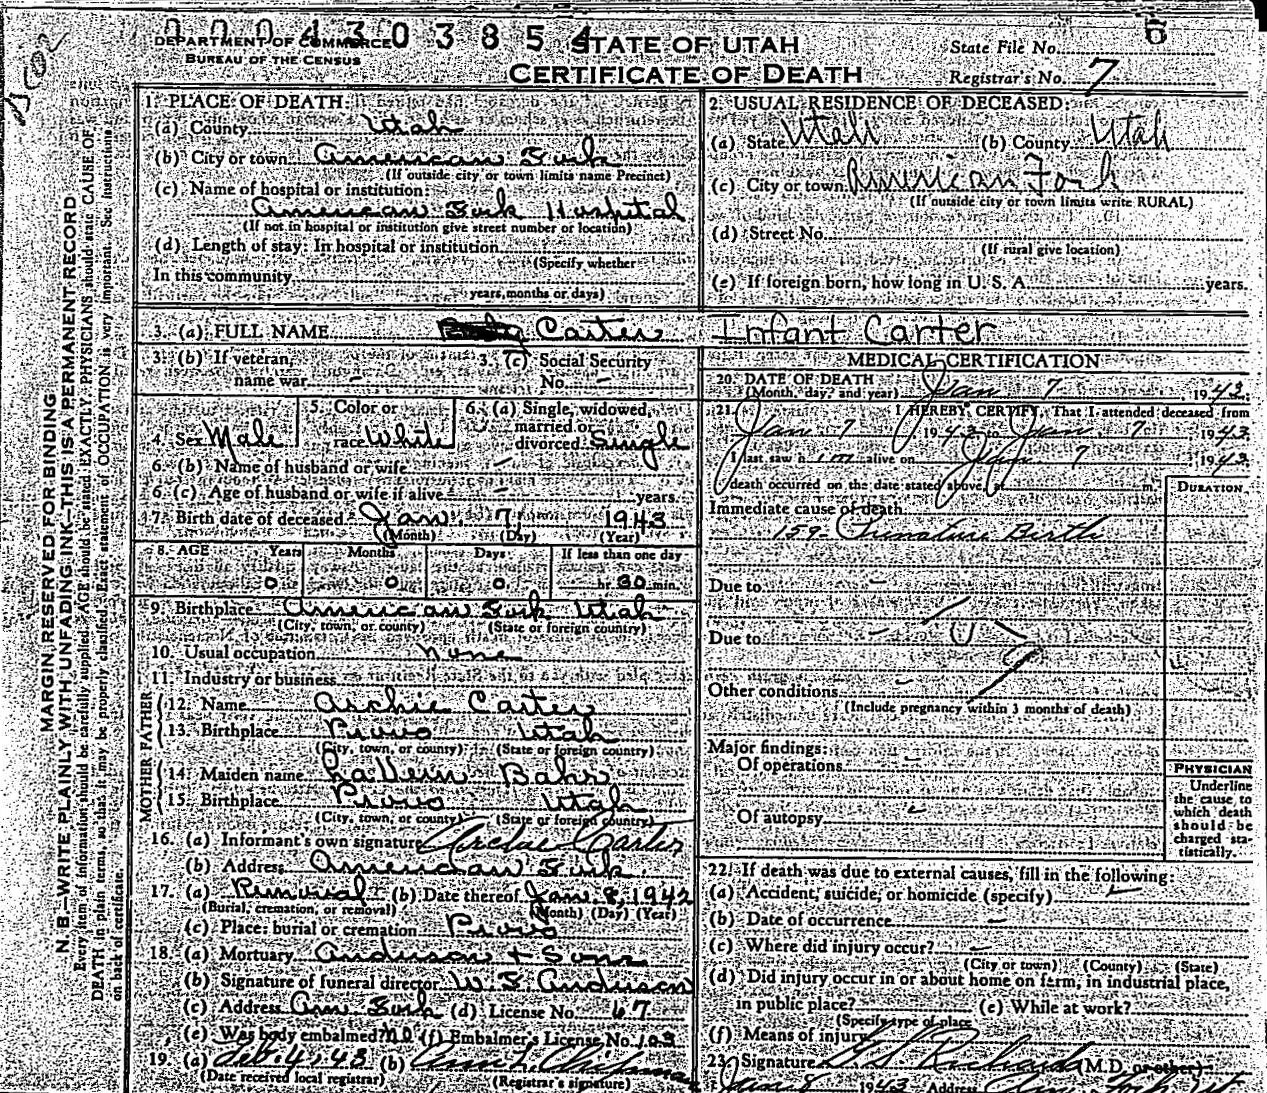 0004303854
DEPARTMENT OF COMMERCE
BUREAU OF THE CENSUS
STATE OF UTAH
CERTIFICATE OF DEATH
State File No. 6
Registrar's No. 7
MARGIN RESERVED FOR BINDING
N. B.—WRITE PLAINLY WITH UNFADING INK—THIS IS A PERMANENT RECORD
Every item of information should be carefully supplied. AGE should be stated EXACTLY. PHYSICIANS should state CAUSE OF
DEATH in plain terms, so that it may be properly classified. Exact statement of OCCUPATION is very important. See instructions
on back of certificate.
1. PLACE OF DEATH:
(a) County Utah
(b) City or town American Fork
(If outside city or town limits name Precinct)
(c) Name of hospital or institution:
American Fork Hospital
(If not in hospital or institution give street number or location)
(d) Length of stay: In hospital or institution
(Specify whether
In this community
years, months or days)
2. USUAL RESIDENCE OF DECEASED:
(a) State Utah (b) County Utah
(c) City or town American Fork
(If outside city or town limits write RURAL)
(d) Street No.
(If rural give location)
(e) If foreign born, how long in U. S. A. years.
3. (a) FULL NAME Carter Infant Carter
3. (b) If veteran, name war –
3. (c) Social Security No. –
4. Sex Male
5. Color or race White
6. (a) Single, widowed, married or divorced Single
6. (b) Name of husband or wife –
6. (c) Age of husband or wife if alive – years.
7. Birth date of deceased Jan. 7, 1943
(Month) (Day) (Year)
8. AGE Years Months Days If less than one day
0 0 0 hr. 30 min.
9. Birthplace American Fork Utah
(City, town, or county) (State or foreign country)
10. Usual occupation none
11. Industry or business
FATHER
12. Name Archie Carter
13. Birthplace Provo Utah
(City, town, or county) (State or foreign country)
MOTHER
14. Maiden name LaVern Bahr
15. Birthplace Provo Utah
(City, town, or county) (State or foreign country)
16. (a) Informant's own signature Archie Carter
(b) Address American Fork
17. (a) Removal (b) Date thereof Jan. 8, 1942
(Burial, cremation, or removal) (Month) (Day) (Year)
(c) Place: burial or cremation Provo
18. (a) Mortuary Anderson & Sons
(b) Signature of funeral director W. F. Anderson
(c) Address Am. Fork (d) License No. 67
(e) Was body embalmed? no (f) Embalmer's License No. 103
19. (a) Feb. 4, 43 (b) Chipman
(Date received local registrar) (Registrar's signature)
MEDICAL CERTIFICATION
20. DATE OF DEATH
(Month, day, and year) Jan 7 1943
21. I HEREBY CERTIFY, That I attended deceased from
Jan 7 1943 to Jan. 7 1943
I last saw h im alive on Jan 7 1943
death occurred on the date stated above, at m.
DURATION
Immediate cause of death
159- Premature Birth
Due to –
Due to –
Other conditions –
(Include pregnancy within 3 months of death)
Major findings:
Of operations –
Of autopsy
PHYSICIAN
Underline
the cause to
which death
should be
charged sta-
tistically.
22. If death was due to external causes, fill in the following:
(a) Accident, suicide, or homicide (specify)
(b) Date of occurrence –
(c) Where did injury occur? –
(City or town) (County) (State)
(d) Did injury occur in or about home on farm, in industrial place,
in public place? (e) While at work?
(Specify type of place
(f) Means of injury
23. Signature Richards (M.D. or other)
Jan 8 1943 Address Am. Fork, Ut